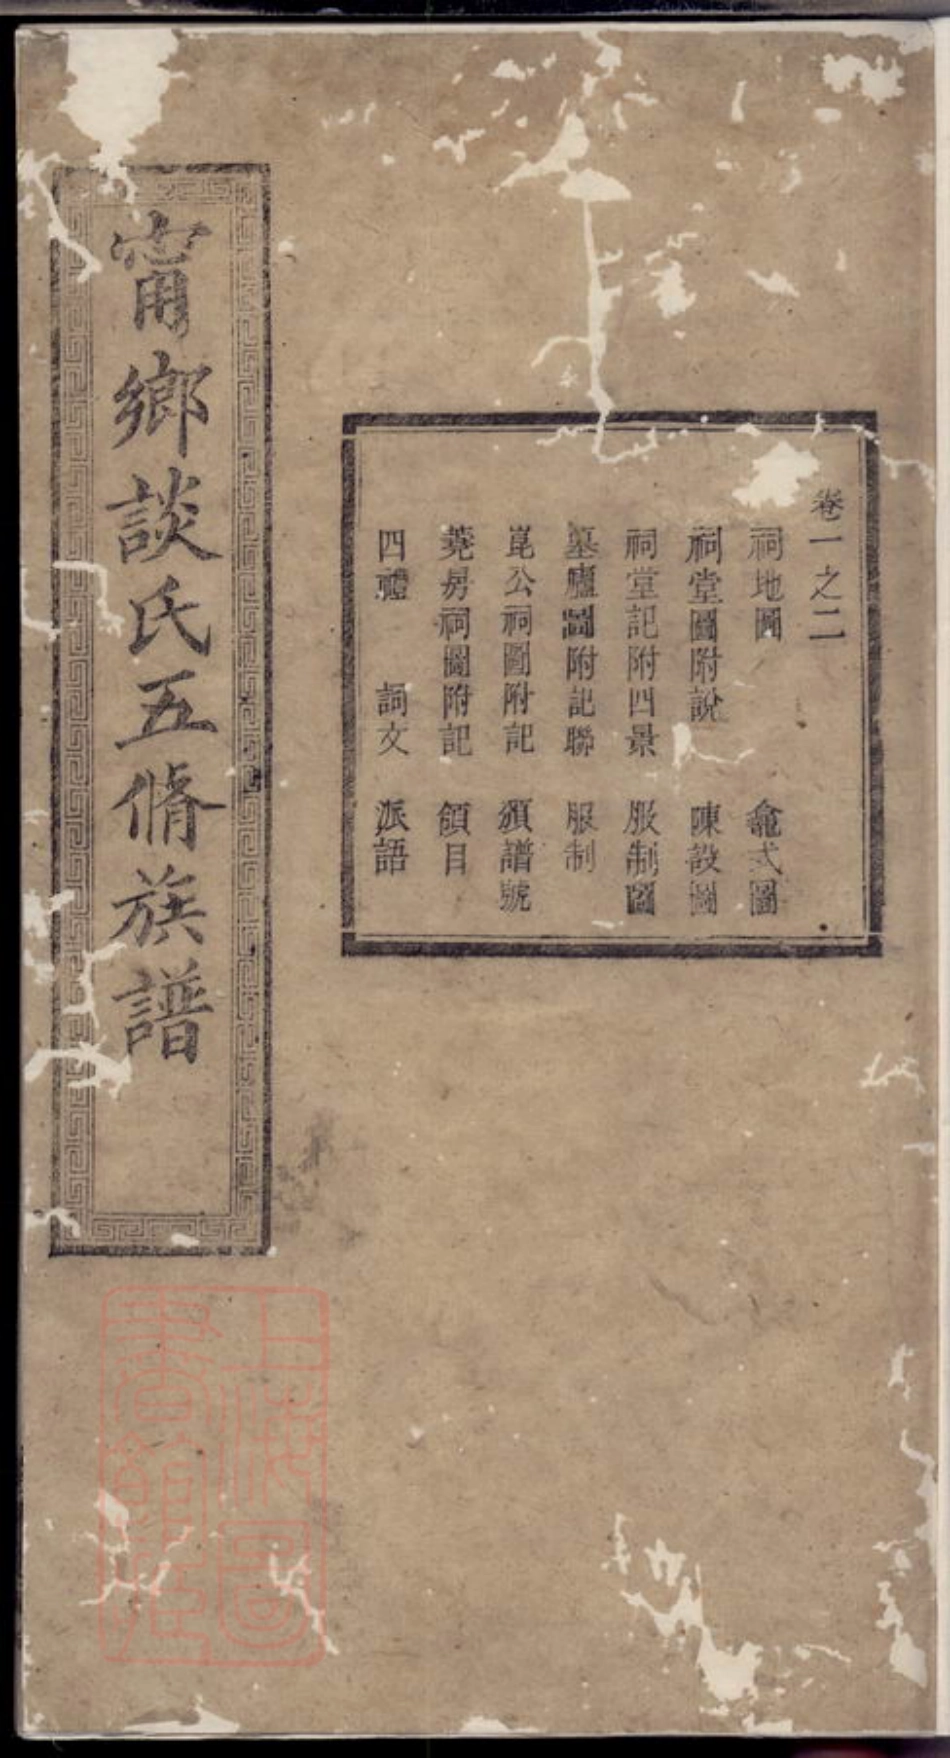 卷一之二
祠地圖 龕式圖
祠堂圖附說 陳設圖
祠堂記附四景 服制圖
墓廬圖附記聯 服制
崑公祠圖附記 頒譜號
房祠圖附記 領目
四禮 詞文 派語
甯鄉談氏五脩族譜
上海圖
書館藏